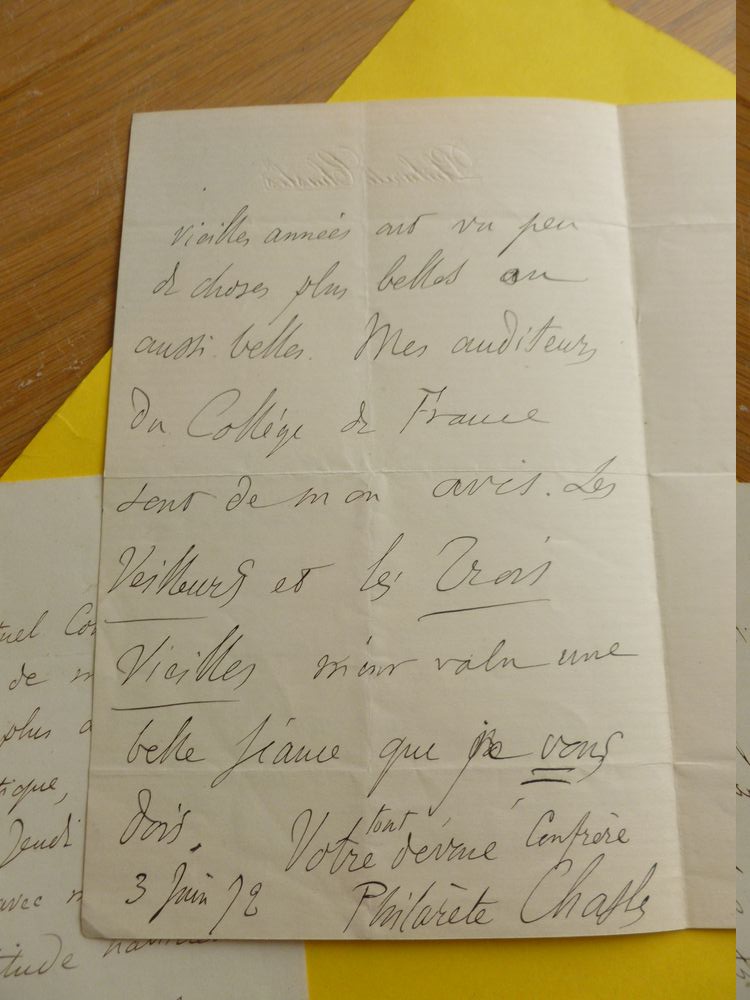 vieilles années ont vu peu
de choses plus belles ou
aussi belles. Mes auditeurs
du Collége de France
sont de mon avis. Les
Veilleurs et les Trois
Vieilles m'ont valu une
belle séance que je vous
dois.
Votre tout dévoué Confrère
3 Juin 72 Philarète Chasles
tuel
de
plus
tique,
Jeudi
avec